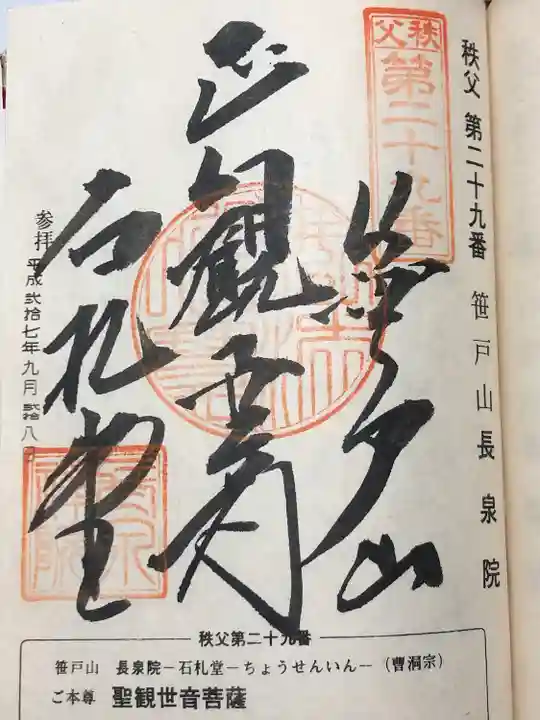 秩父 第二十九番 笹戸山長泉院
秩父
第二十九番
笹戸山
正観世音
石札堂
参拝 平成 弐拾七年九月 弐拾八
秩父第二十九番
笹戸山 長泉院－石札堂－ちょうせんいん－（曹洞宗）
ご本尊 聖観世音菩薩